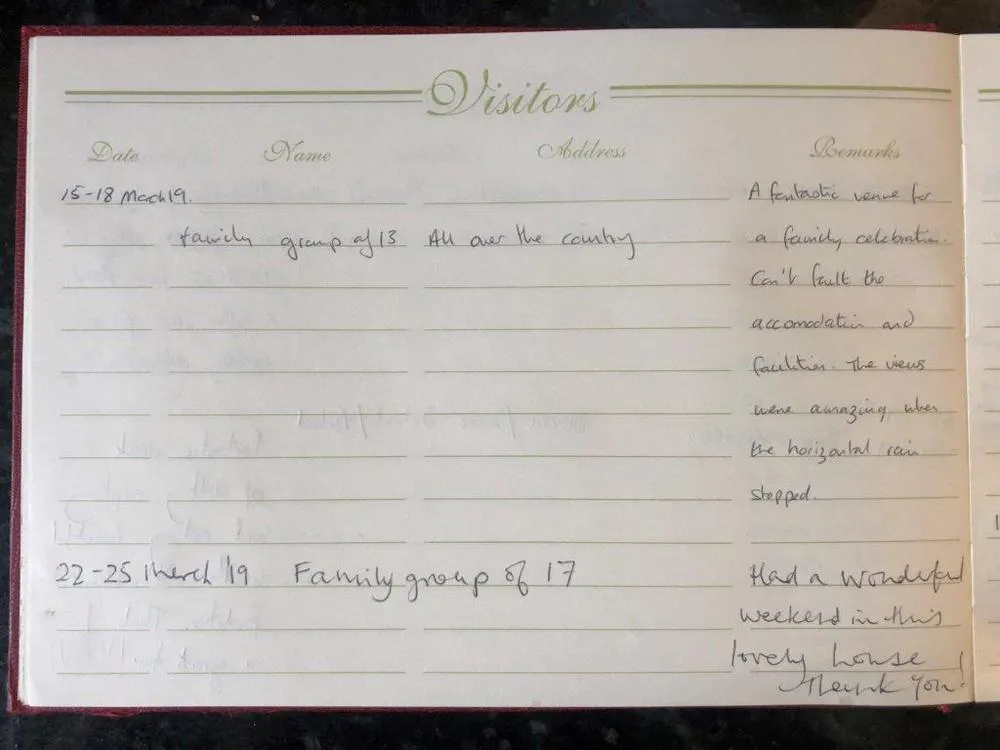 Visitors
Date Name Address Remarks
15-18 March 19. A fantastic venue for
family group of 13 All over the country a family celebration.
Can't fault the
accomodation and
facilities. The views
were amazing when
the horizontal rain
stopped.
22-25 March '19 Family group of 17 Had a wonderful
weekend in this
lovely house !
Thank You!